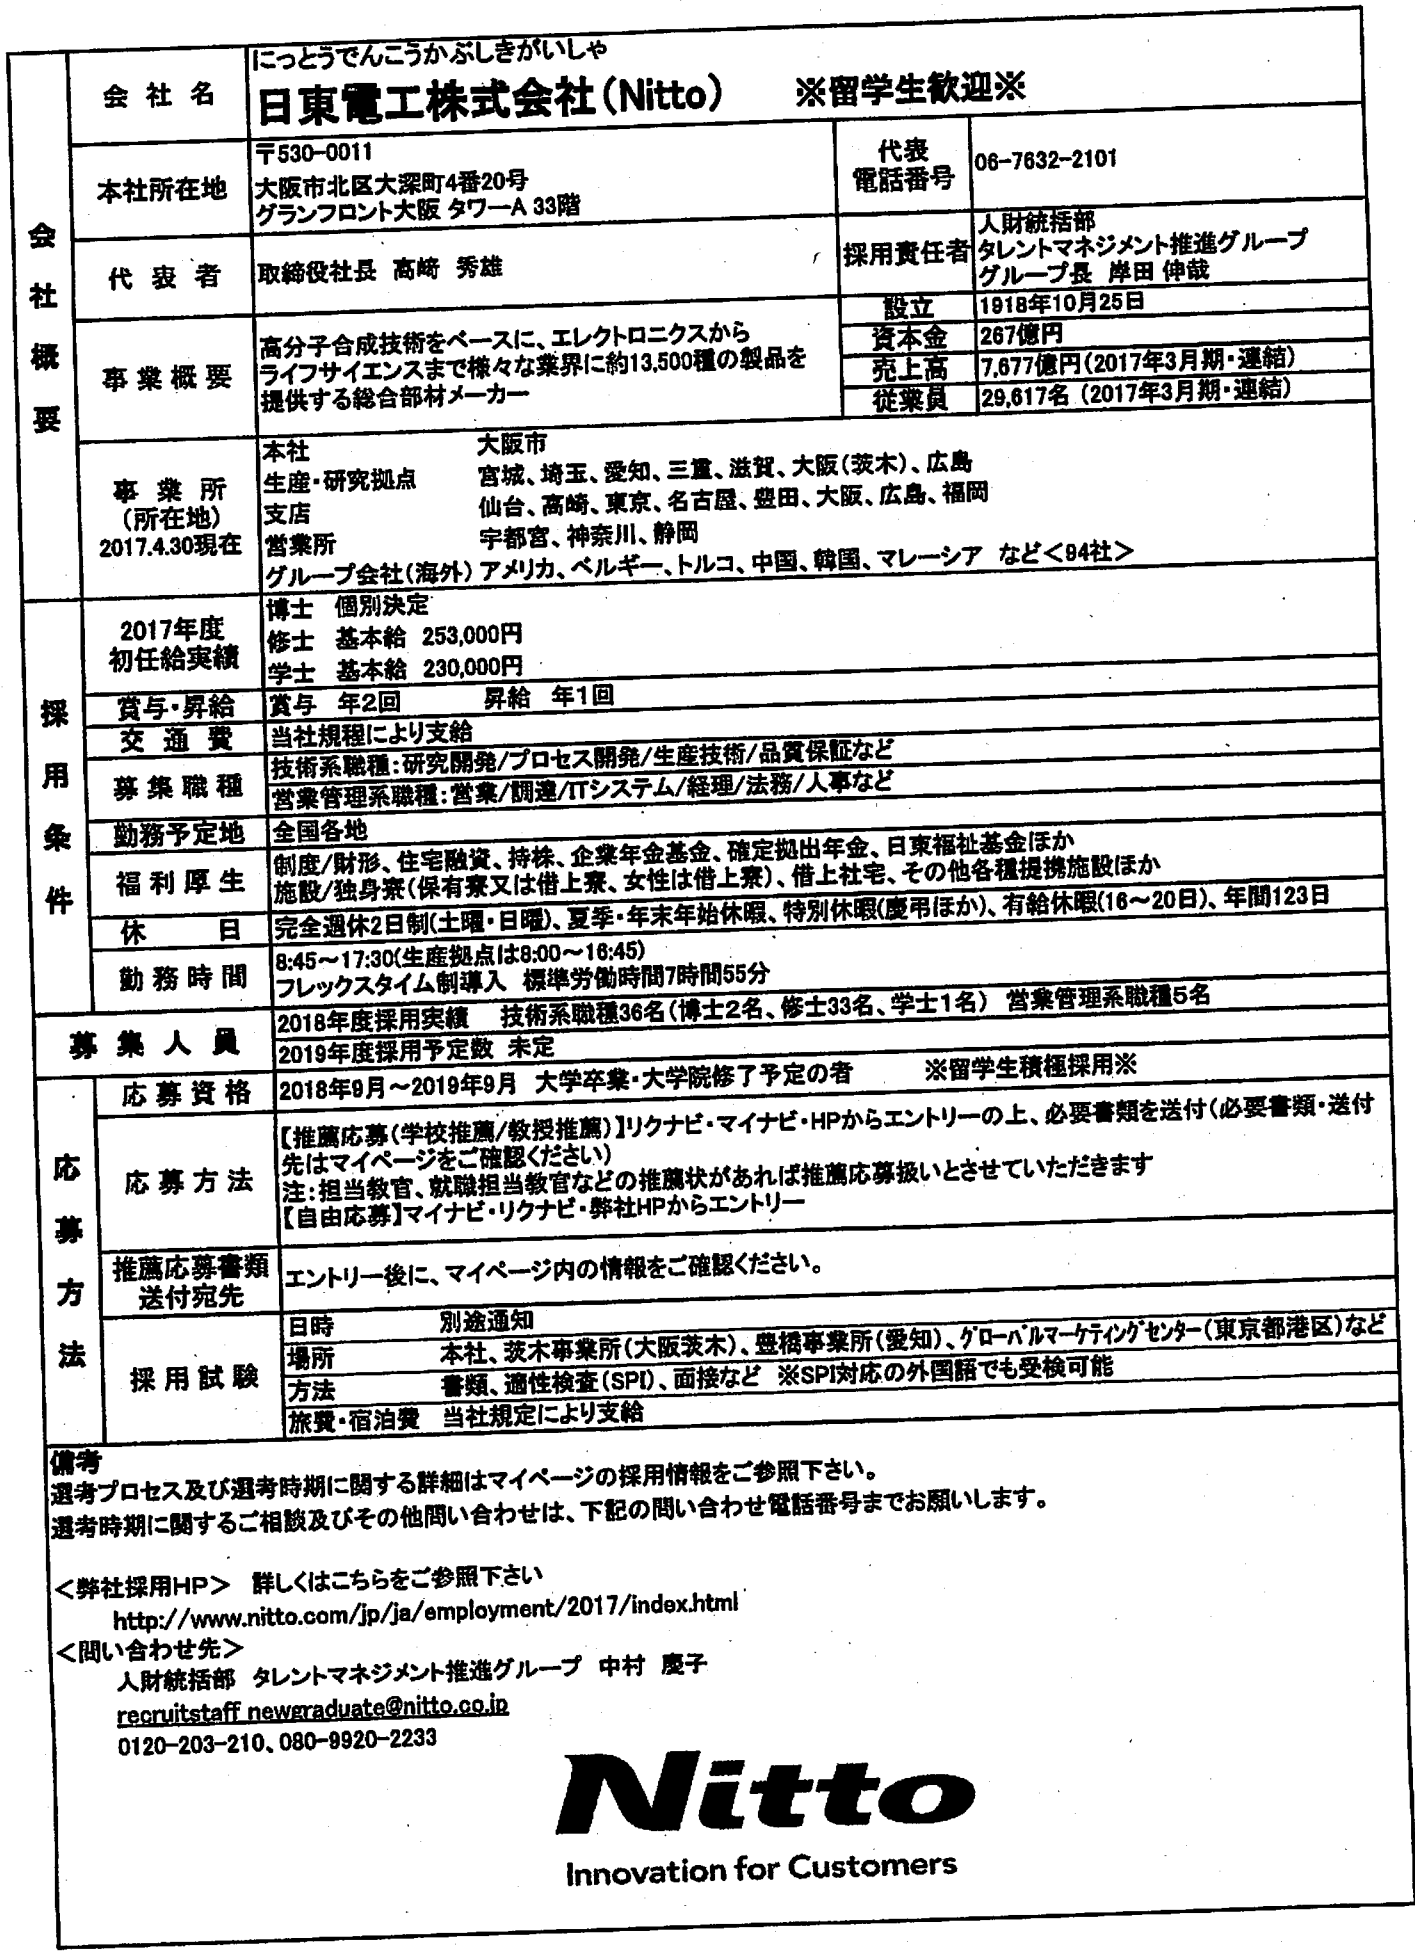 会社概要
会社名
にっとうでんこうかぶしきがいしゃ
日東電工株式会社(Nitto) ※留学生歓迎※
本社所在地
〒530-0011
大阪市北区大深町4番20号
グランフロント大阪 タワーA 33階
代表
電話番号
06-7632-2101
代表者
取締役社長 高﨑 秀雄
採用責任者
人財統括部
タレントマネジメント推進グループ
グループ長 岸田 伸哉
事業概要
高分子合成技術をベースに、エレクトロニクスから
ライフサイエンスまで様々な業界に約13,500種の製品を
提供する総合部材メーカー
設立 1918年10月25日
資本金 267億円
売上高 7,677億円(2017年3月期・連結)
従業員 29,617名 (2017年3月期・連結)
事業所
(所在地)
2017.4.30現在
本社 大阪市
生産・研究拠点 宮城、埼玉、愛知、三重、滋賀、大阪(茨木)、広島
支店 仙台、高崎、東京、名古屋、豊田、大阪、広島、福岡
営業所 宇都宮、神奈川、静岡
グループ会社(海外) アメリカ、ベルギー、トルコ、中国、韓国、マレーシア など<94社>
採用条件
2017年度
初任給実績
博士 個別決定
修士 基本給 253,000円
学士 基本給 230,000円
賞与・昇給 賞与 年2回 昇給 年1回
交通費 当社規程により支給
募集職種
技術系職種:研究開発/プロセス開発/生産技術/品質保証など
営業管理系職種:営業/調達/ITシステム/経理/法務/人事など
勤務予定地 全国各地
福利厚生
制度/財形、住宅融資、持株、企業年金基金、確定拠出年金、日東福祉基金ほか
施設/独身寮(保有寮又は借上寮、女性は借上寮)、借上社宅、その他各種提携施設ほか
休日 完全週休2日制(土曜・日曜)、夏季・年末年始休暇、特別休暇(慶弔ほか)、有給休暇(16~20日)、年間123日
勤務時間
8:45~17:30(生産拠点は8:00~16:45)
フレックスタイム制導入 標準労働時間7時間55分
募集人員
2018年度採用実績 技術系職種36名(博士2名、修士33名、学士1名) 営業管理系職種5名
2019年度採用予定数 未定
応募方法
応募資格 2018年9月~2019年9月 大学卒業・大学院修了予定の者 ※留学生積極採用※
応募方法
【推薦応募(学校推薦/教授推薦)】リクナビ・マイナビ・HPからエントリーの上、必要書類を送付(必要書類・送付
先はマイページをご確認ください)
注:担当教官、就職担当教官などの推薦状があれば推薦応募扱いとさせていただきます
【自由応募】マイナビ・リクナビ・弊社HPからエントリー
推薦応募書類
送付宛先
エントリー後に、マイページ内の情報をご確認ください。
採用試験
日時 別途通知
場所 本社、茨木事業所(大阪茨木)、豊橋事業所(愛知)、グローバルマーケティングセンター(東京都港区)など
方法 書類、適性検査(SPI)、面接など ※SPI対応の外国語でも受検可能
旅費・宿泊費 当社規定により支給
備考
選考プロセス及び選考時期に関する詳細はマイページの採用情報をご参照下さい。
選考時期に関するご相談及びその他問い合わせは、下記の問い合わせ電話番号までお願いします。
<弊社採用HP> 詳しくはこちらをご参照下さい
http://www.nitto.com/jp/ja/employment/2017/index.html
<問い合わせ先>
人財統括部 タレントマネジメント推進グループ 中村 慶子
recruitstaff_newgraduate@nitto.co.jp
0120-203-210、080-9920-2233
Nitto
Innovation for Customers